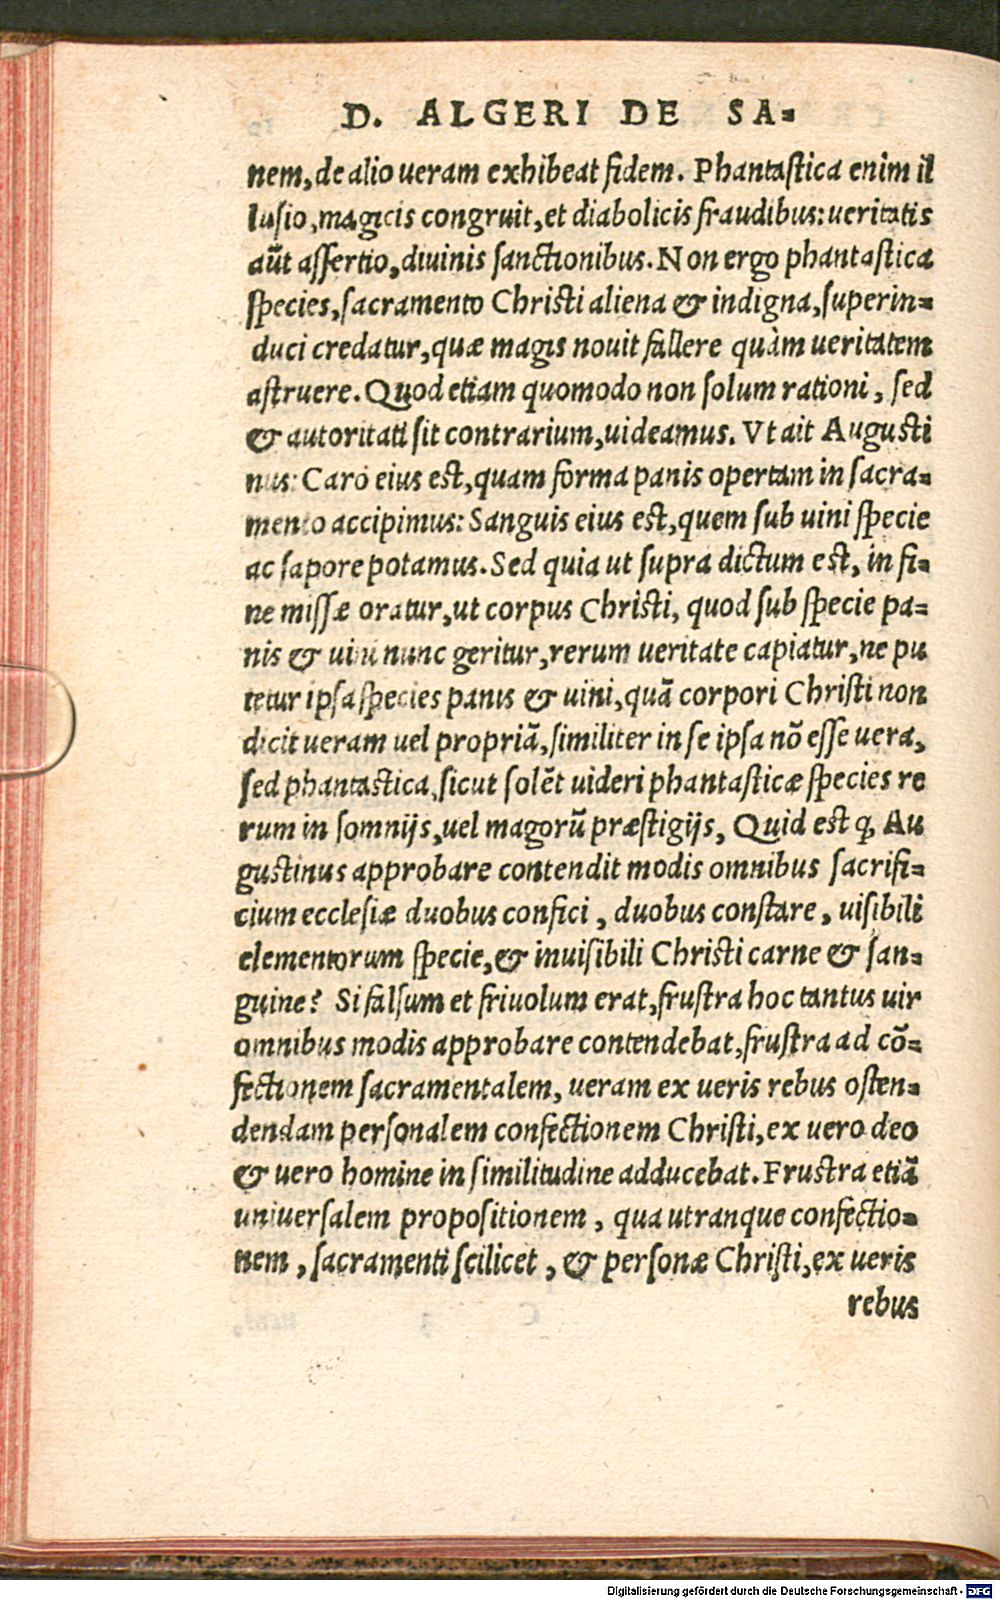 D. ALGERI DE SA-
nem, de alio ueram exhibeat fidem. Phantastica enim il
lusio, magicis congruit, et diabolicis fraudibus: ueritatis
aũt assertio, diuinis sanctionibus. Non ergo phantastica
species, sacramento Christi aliena & indigna, superin-
duci credatur, quæ magis nouit fallere quàm ueritatem
astruere. Quod etiam quomodo non solum rationi, sed
& autoritati sit contrarium, uideamus. Vt ait Augusti
nus: Caro eius est, quam forma panis opertam in sacra-
mento accipimus: Sanguis eius est, quem sub uini specie
ac sapore potamus. Sed quia ut supra dictum est, in fi-
ne missæ oratur, ut corpus Christi, quod sub specie pa-
nis & uini nunc geritur, rerum ueritate capiatur, ne pu
tetur ipsa species panis & uini, quã corpori Christi non
dicit ueram uel propriã, similiter in se ipsa nõ esse uera,
sed phantastica, sicut solẽt uideri phantasticæ species re
rum in somnijs, uel magorũ præstigijs, Quid est ꝙ Au
gustinus approbare contendit modis omnibus sacrifi-
cium ecclesiæ duobus confici, duobus constare, uisibili
elementorum specie, & inuisibili Christi carne & san-
guine? Si falsum et friuolum erat, frustra hoc tantus uir
omnibus modis approbare contendebat, frustra ad cõ-
fectionem sacramentalem, ueram ex ueris rebus osten-
dendam personalem confectionem Christi, ex uero deo
& uero homine in similitudine adducebat. Frustra etiã
uniuersalem propositionem, qua utranque confectio-
nem, sacramenti scilicet, & personæ Christi, ex ueris
rebus
Digitalisierung gefördert durch die Deutsche Forschungsgemeinschaft - DFG